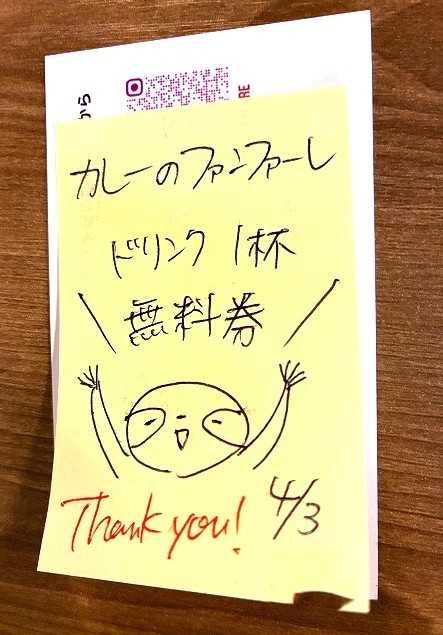 から
RE
カレーのファンファーレ
ドリンク 1杯
無料券
Thank you! 4/3